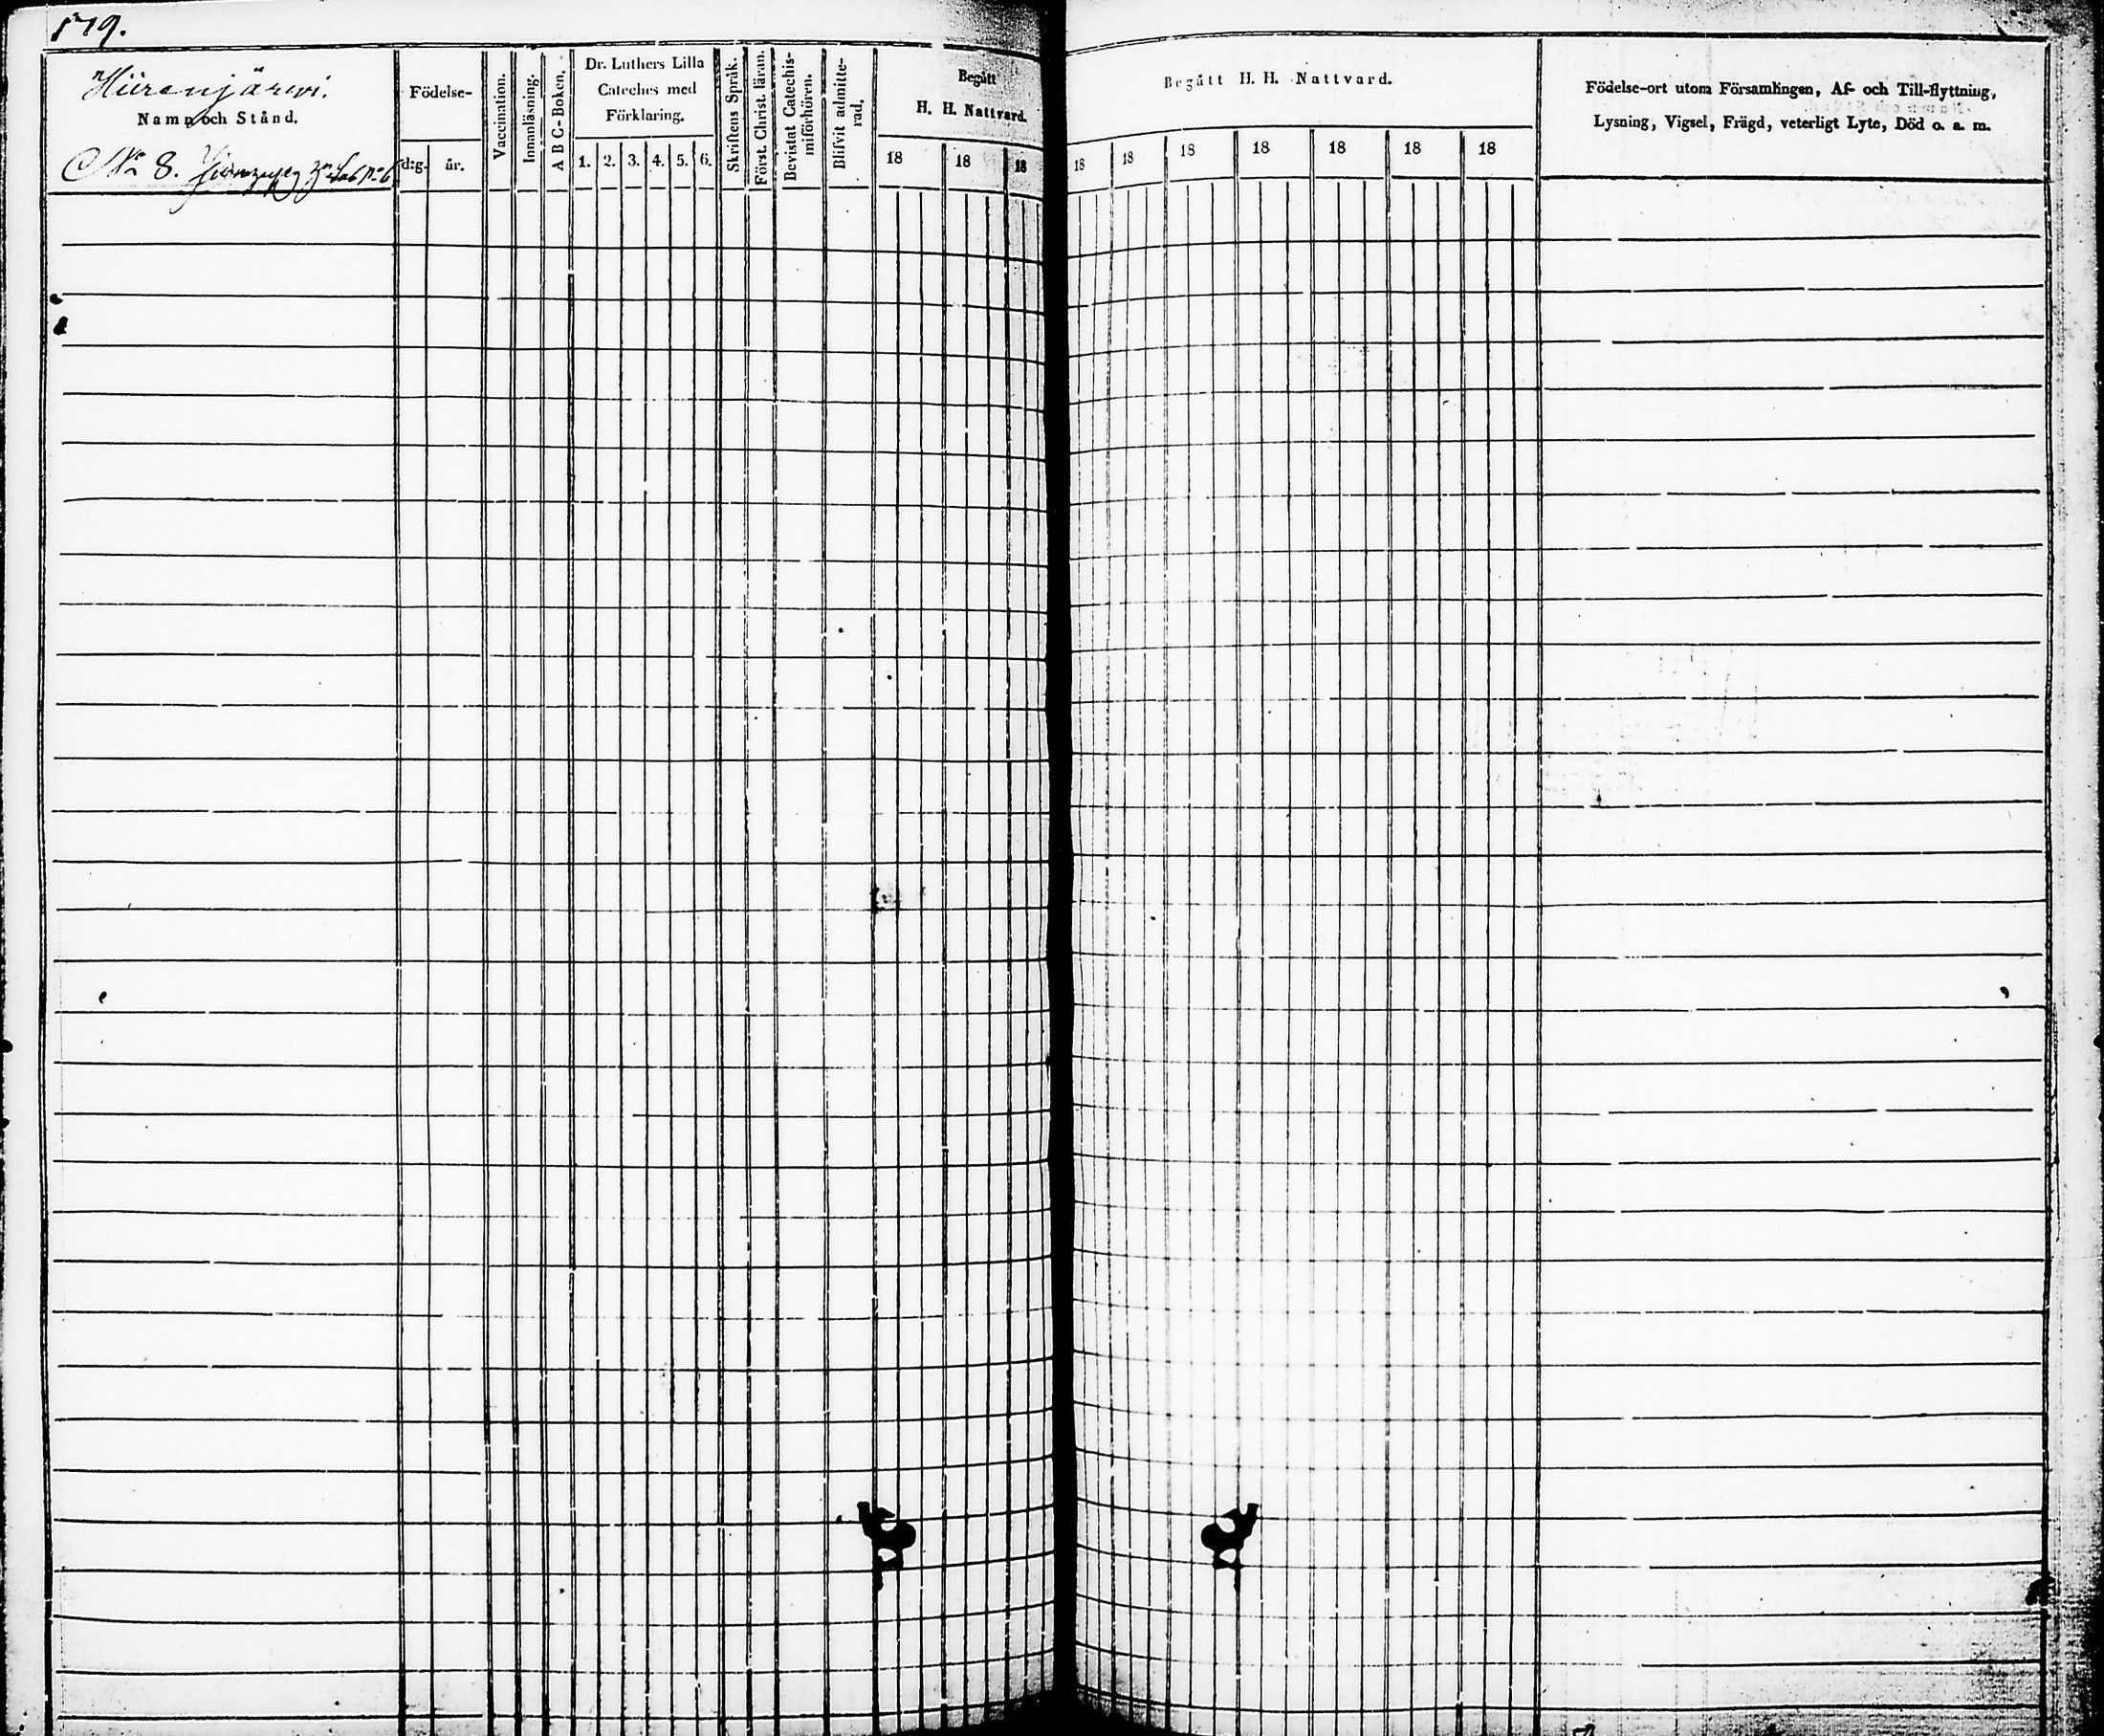 179.
Hiirenjärwi.
Namn och Stånd.
No 8.
Födelse-
d:g.
år.
Vaccination.
Innanläsning.
A B C-Boken,
Dr. Luthers Lilla
Cateches med
Förklaring.
1. 2. 3. 4. 5. 6.
Skriftens Språk.
Först. Christ. läran.
Bevistat Catechis-
miförhören.
Blifvit admitte-
rad,
Begått
H. H. Nattvard.
18 18 18
Begått H. H. Nattvard.
18 18 18 18 18 18 18
Födelse-ort utom Församlingen, Af- och Till-flyttning,
Lysning, Vigsel, Frägd, veterligt Lyte, Död o. a. m.